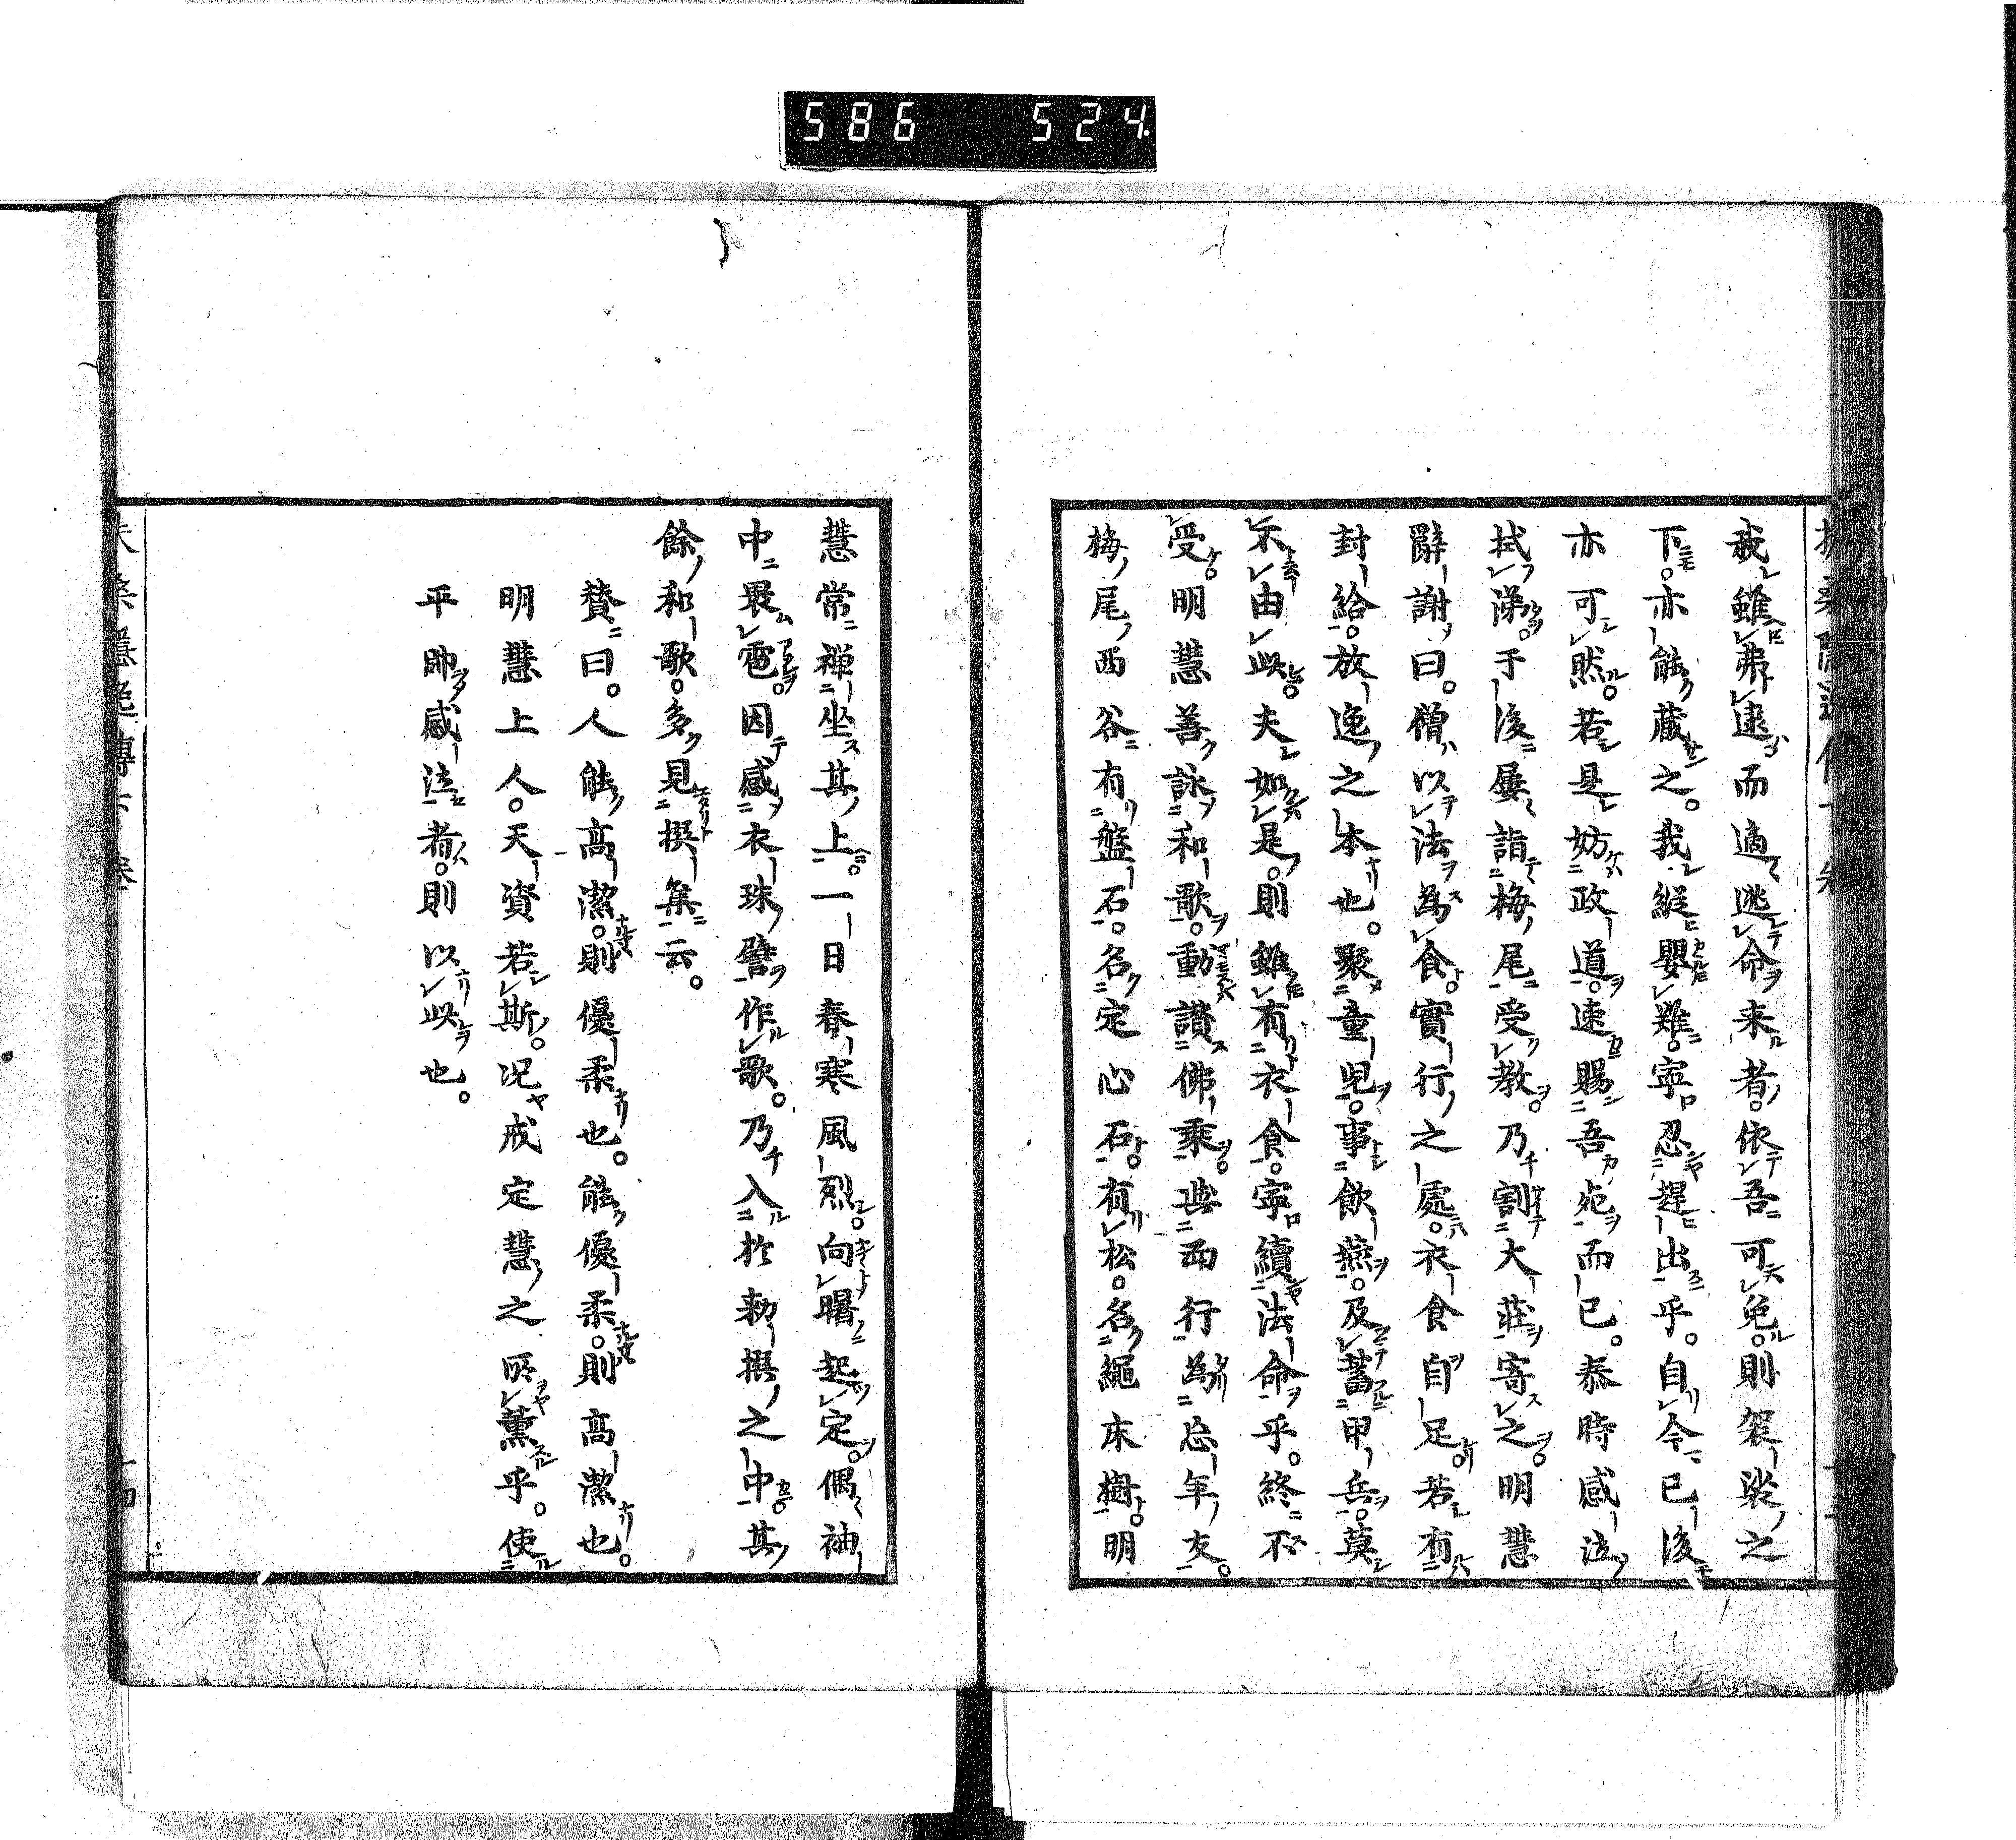 586 524
我雖弗逮而適逃命来者。依吾可免。則袈裟之
下。亦能蔵之。我縦嬰難。寧忍趕出乎。自今已後
亦可然。若是妨政道。速賜吾死而已。泰時感泣
拭涕。于後屡詣梅尾受教。乃割大莊寄之。明慧
辭謝曰。僧以法為食。實行之處。衣食自足。若有
封給。放逸之本也。聚童児。事飲燕。及蓄甲兵。莫
不由此。夫如是。則雖有衣食。寧續法命乎。終不
受。明慧善詠和歌。動讃佛乘。與西行為忘年友。
梅尾西谷有盤石。名定心石。有松。名繩床樹。明
慧常禅坐其上。一日春寒風烈。向曙起定。偶袖
中裹雹。因感衣珠譬作歌。乃入於勅撰之中。其
餘和歌。多見撰集云。
賛曰。人能高潔。則優柔也。能優柔。則高潔也。
明慧上人。天資若斯。况戒定慧之所薫乎。使
平帥感泣者。則以此也。